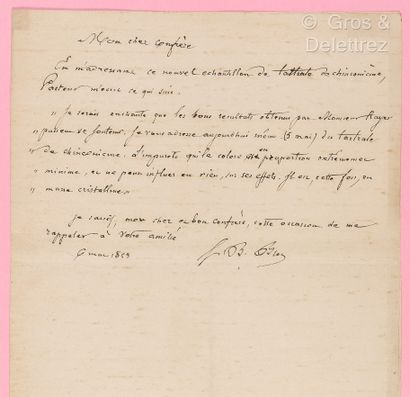 © Gros &
Delettrez
Mon cher confrère
En m'adressant ce nouvel échantillon de tartrate de chinconicine,
Pasteur m'écrit ce qui suit.
" Je serais enchanté que les bons résultats obtenus par Monsieur Rayer
" puissent se soutenir. Je vous adresse aujourd'hui même (5 mai) du tartrate
" de chinconicine. L'impureté qui le colore est en proportion extrêmement
" minime, et ne peut influer en rien, sur ses effets. Il est, cette fois, en
" masse cristalline. "
Je saisis, mon cher et bon confrère, cette occasion de me
rappeler à votre amitié
6 mai 1853
J. B. Biot